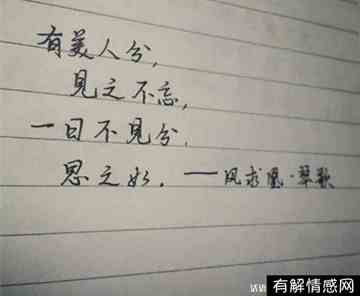 有美人兮,
见之不忘,
一日不见兮,
思之如. ——凤求凰·琴歌
www
有解情感网